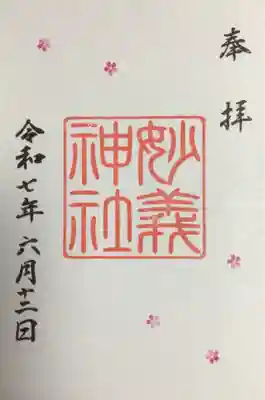 奉拝
妙義
神社
令和七年 六月十二日